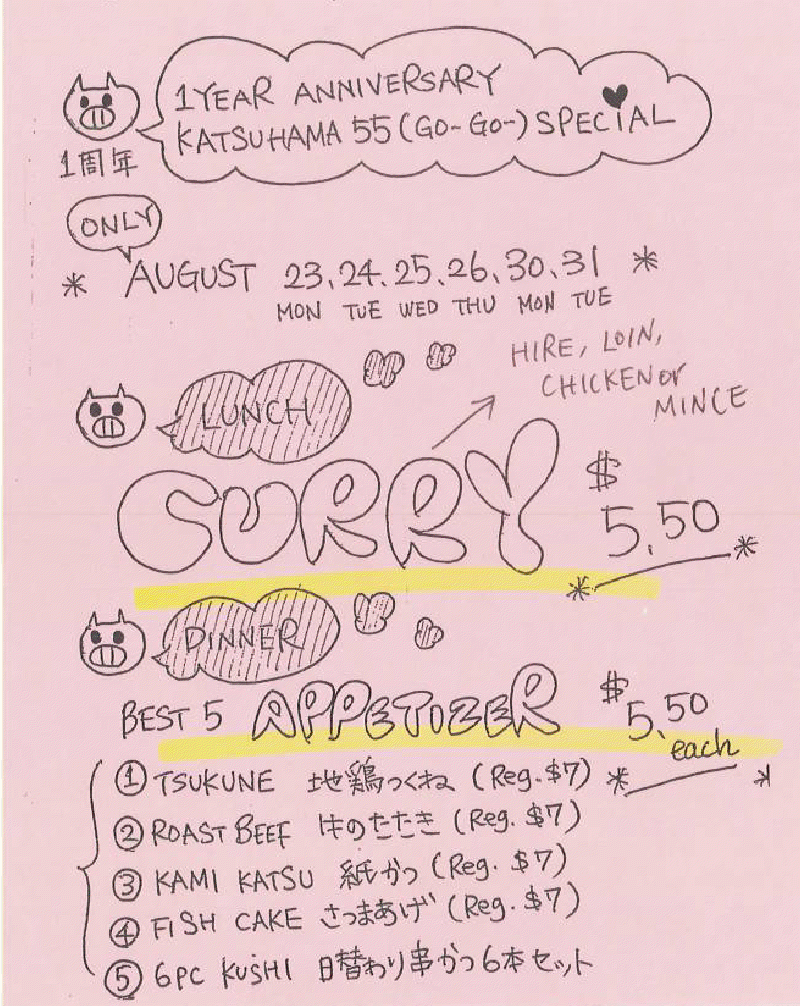 1 YEAR ANNIVERSARY
KATSUHAMA 55 (GO- GO-) SPECIAL
1周年
ONLY
* AUGUST 23, 24, 25, 26, 30, 31 *
MON TUE WED THU MON TUE
HIRE, LOIN,
CHICKEN or
MINCE
LUNCH
CURRY $5.50
DINNER
BEST 5 APPETIZER $5.50
each
① TSUKUNE 地鶏つくね (Reg. $7)
② ROAST BEEF 牛のたたき (Reg. $7)
③ KAMI KATSU 紙かつ (Reg. $7)
④ FISH CAKE さつまあげ (Reg. $7)
⑤ 6PC KUSHI 日替わり串かつ6本セット